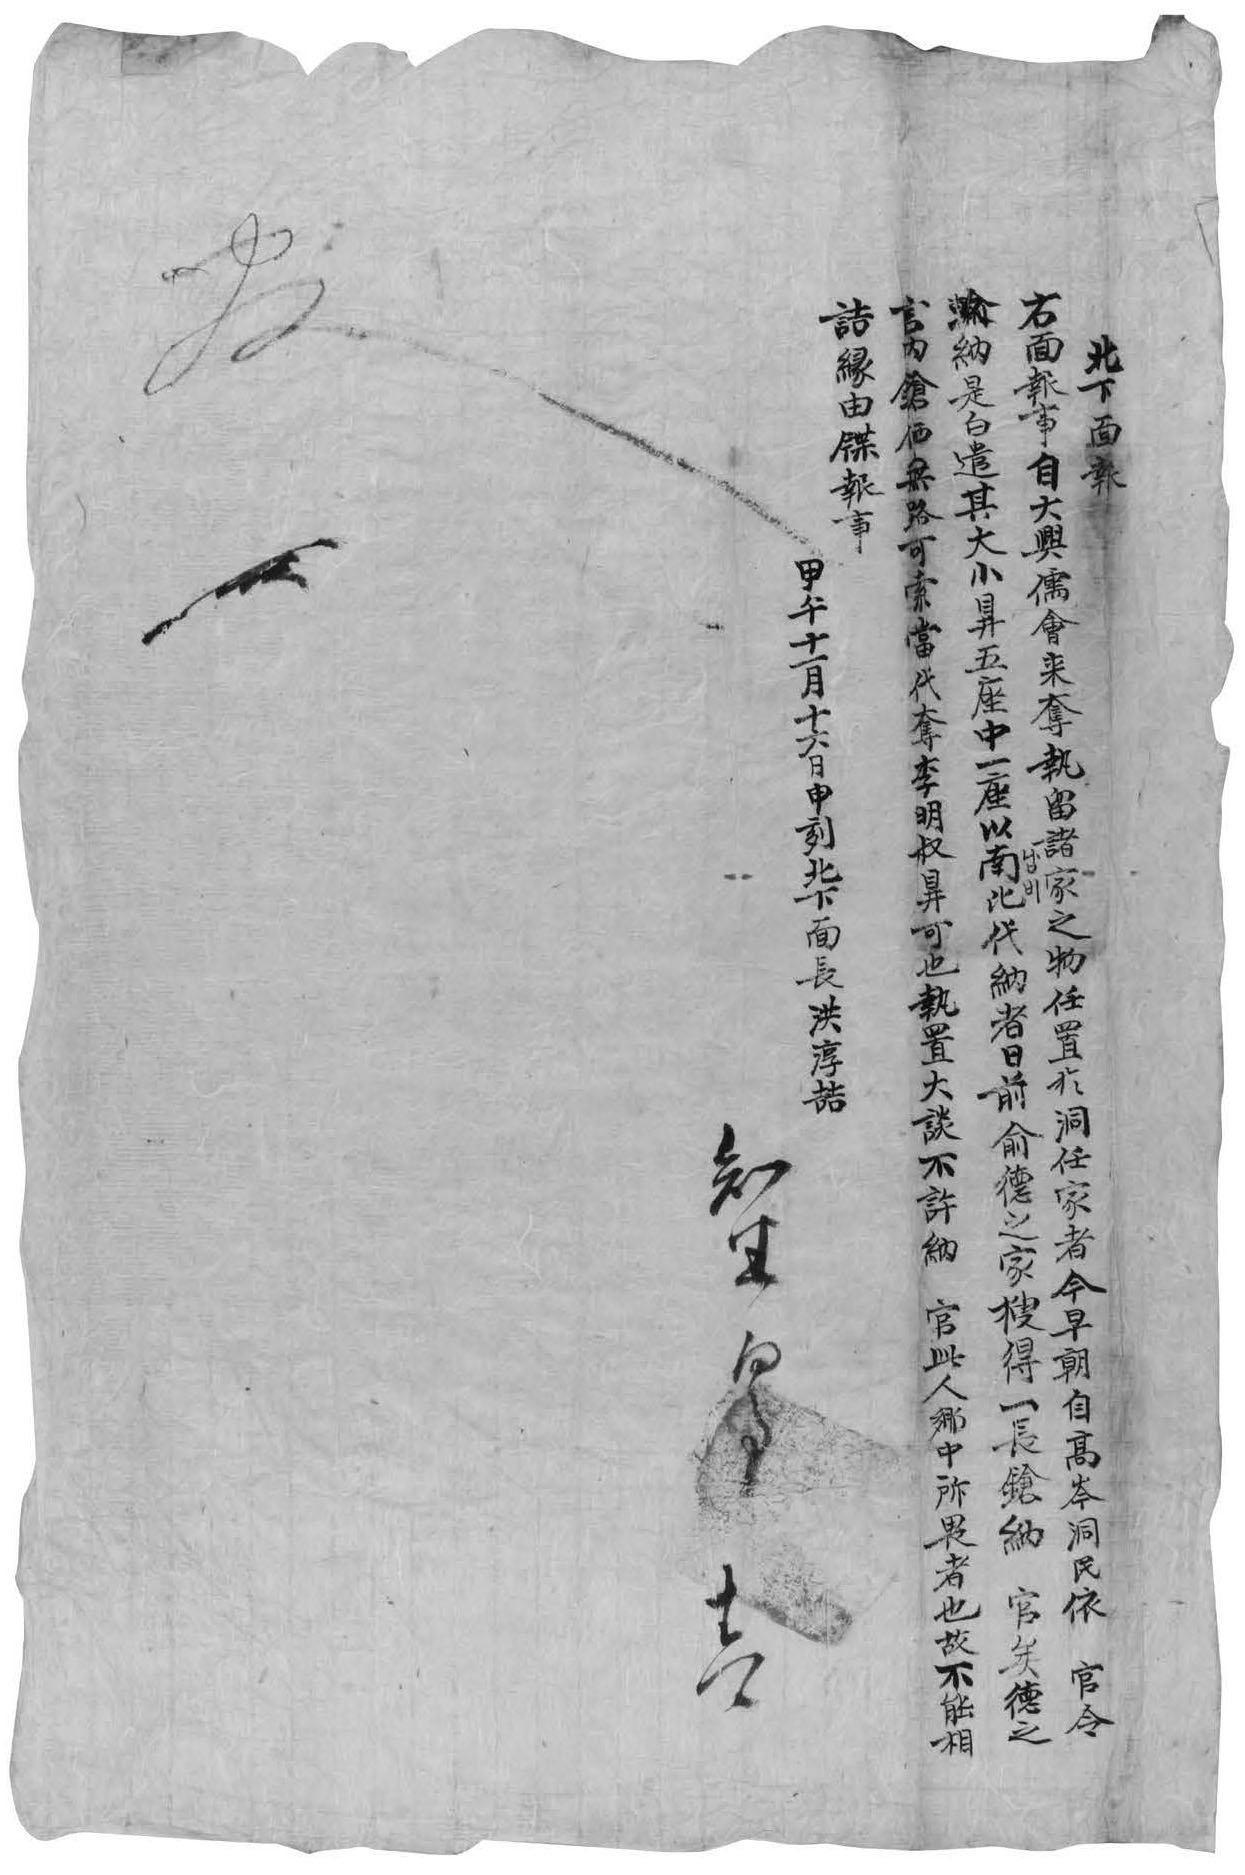 北下面報
右面報事自大興儒會来奪執留諸家之物任置於洞任家者今早朝自高岑洞民依 官令
輸納是白遣其大小昇五座中一座以南比代納者日前俞德之家搜得一長鎗納 官矣德之
남비
言內鎗価無路可索當代奪李明叔昇可也執置大談不許納 官此人鄕中所畏者也故不能相
詰緣由牒報事
甲午十一月十六日申刻北下面長洪淳喆